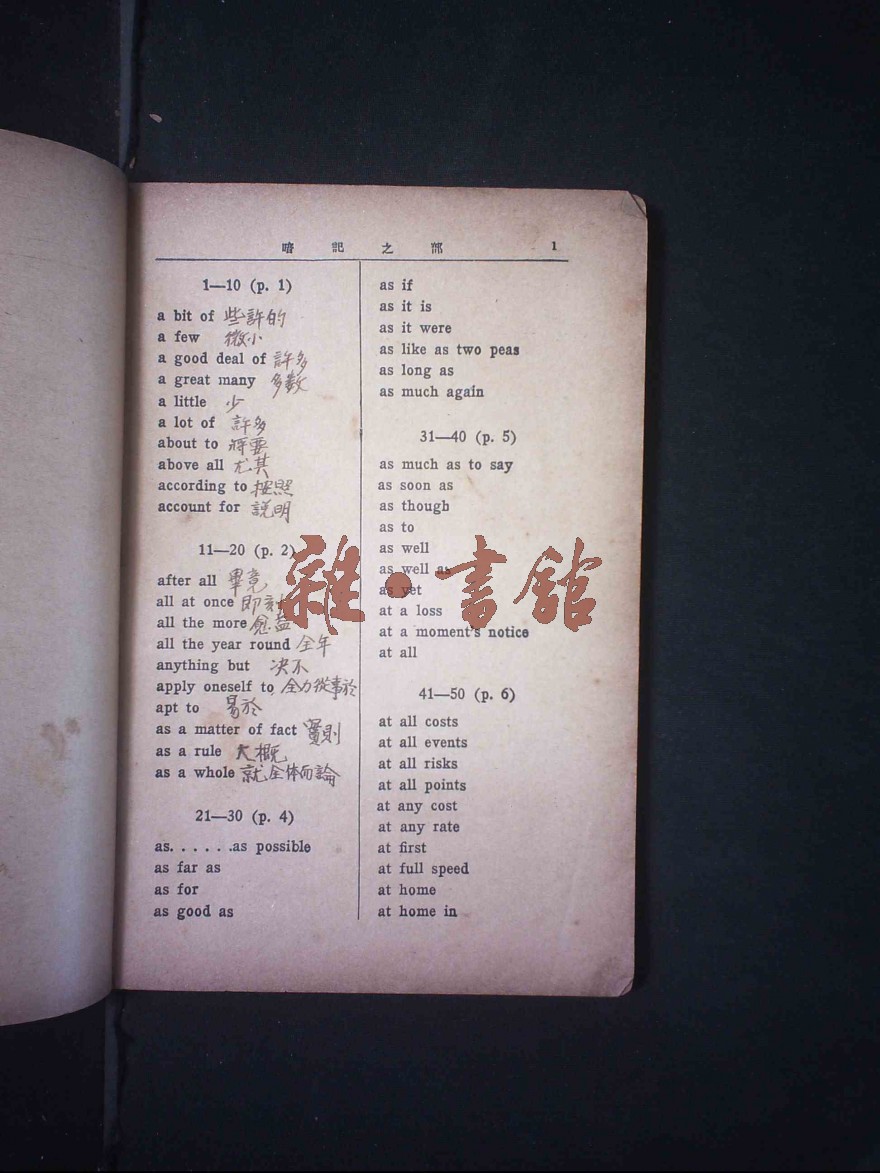 暗記之部 1
1—10 (p. 1)
a bit of 些許的
a few 微小
a good deal of 許多
a great many 多數
a little 少
a lot of 許多
about to 將要
above all 尤其
according to 按照
account for 說明
11—20 (p. 2)
after all 畢竟
all at once 即刻
all the more 愈益
all the year round 全年
anything but 决不
apply oneself to 全力從事於
apt to 易於
as a matter of fact 實則
as a rule 大概
as a whole 就全体而論
21—30 (p. 4)
as. . . . . .as possible
as far as
as for
as good as
as if
as it is
as it were
as like as two peas
as long as
as much again
31—40 (p. 5)
as much as to say
as soon as
as though
as to
as well
as well as
as yet
at a loss
at a moment's notice
at all
41—50 (p. 6)
at all costs
at all events
at all risks
at all points
at any cost
at any rate
at first
at full speed
at home
at home in
雜·書館